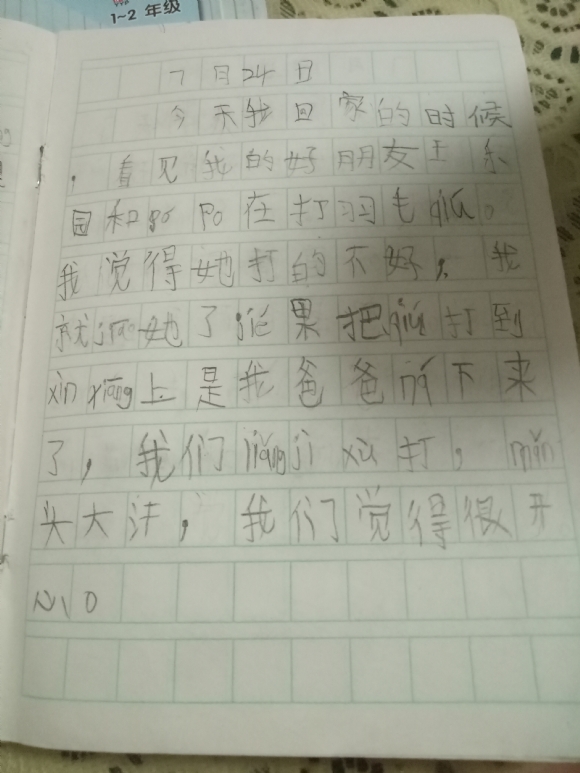 1~2 年级
7月24日
今天我回家的时候
，看见我的好朋友王乐
园和pó po在打羽毛qiú。
我觉得她打的不好，我
就jiāo她了jié果把qiú打到
xìn xiāng上是我爸爸ná下来
了，我们liǎng jì xù打，mǎn
头大汗，我们觉得很开
心。